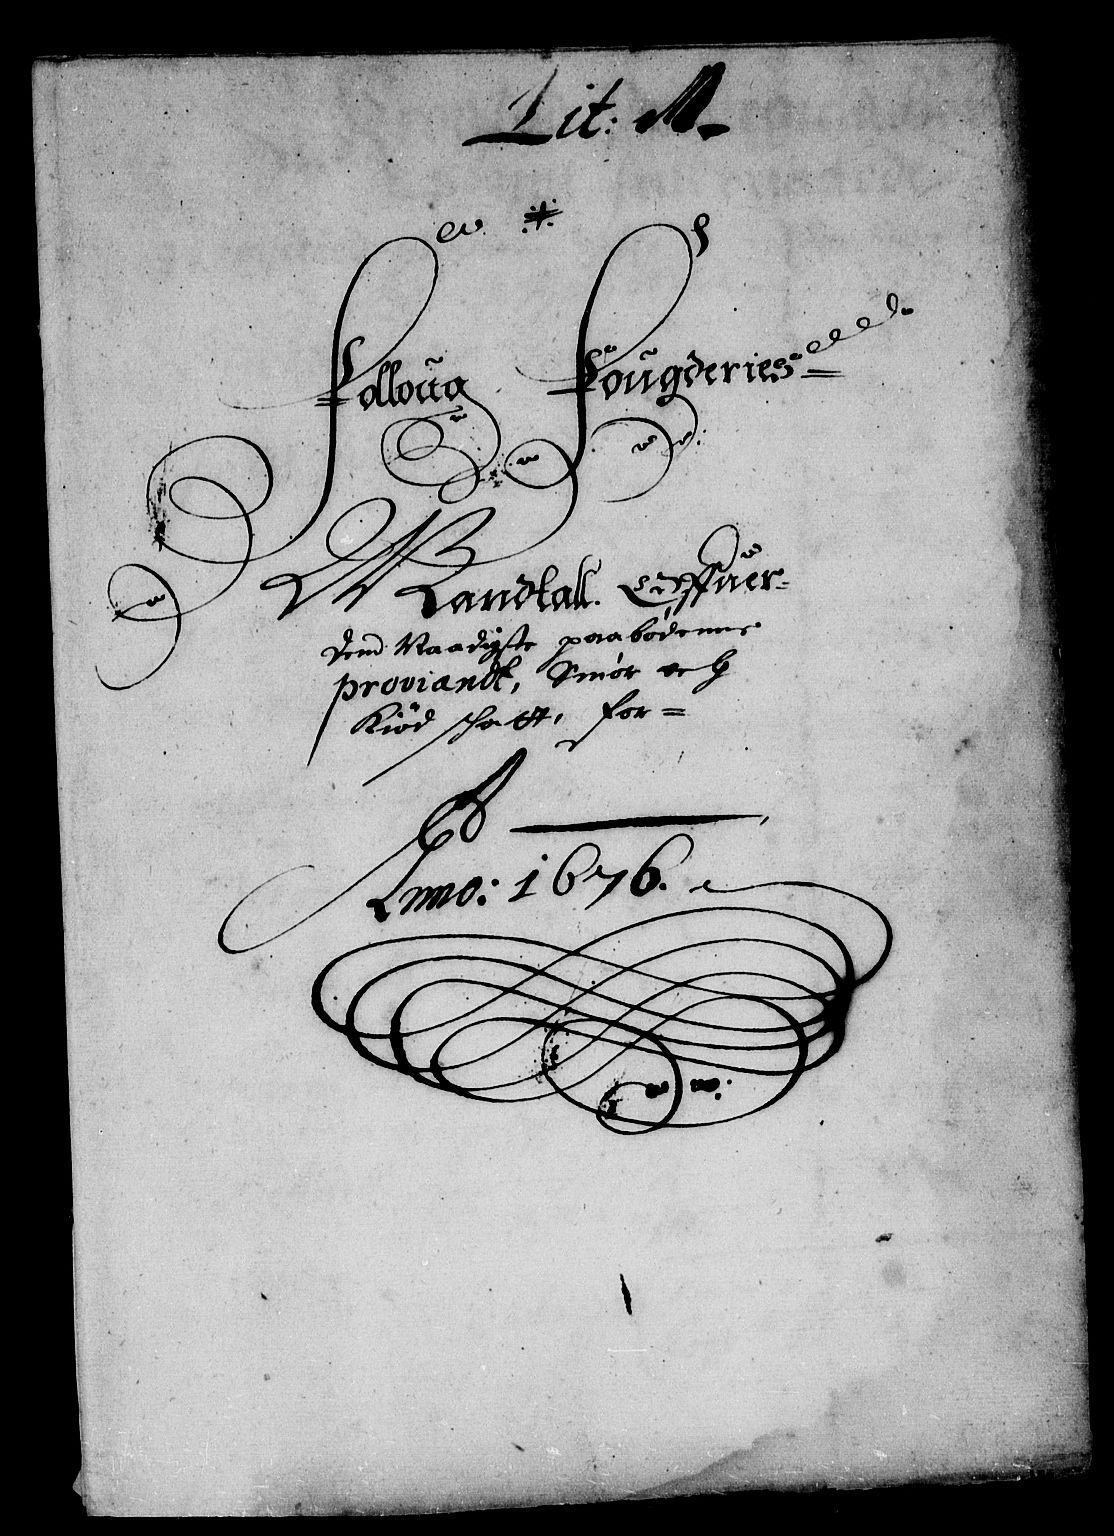 Lit: M.
Folloug Fougderies
Mandtall Offuer
dend Naadigste paabødenne
proviandt, Smør och
Kiød schatt, for
Anno: 1676.